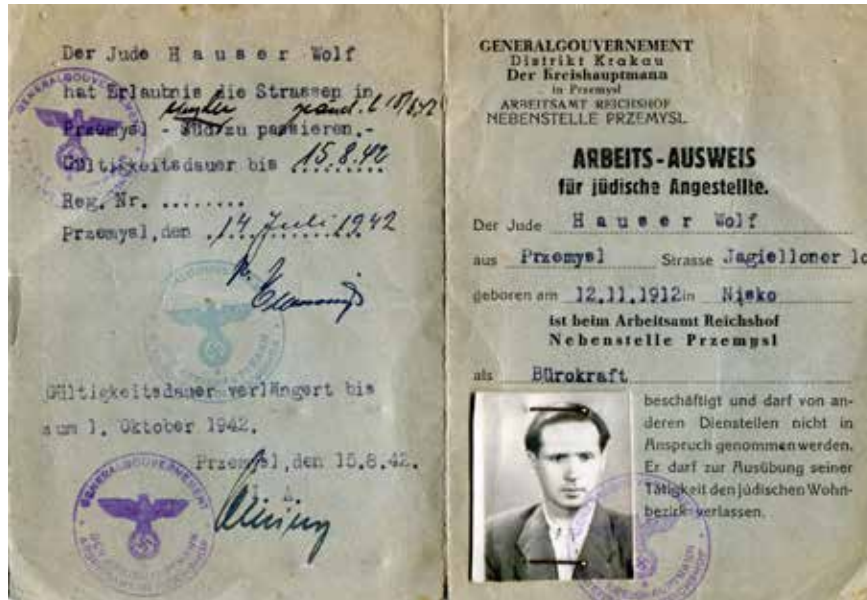 Der Jude H a u s e r Wolf
hat Erlaubnis die Strassen in
Przemysl - Süd zu passieren.-
Gültigkeitsdauer bis 15.8.42
Reg. Nr. ........
Przemysl, den 14 Juli 1942
Gültigkeitsdauer verlängert bis
zum 1. Oktober 1942.
Przemysl, den 15.8.42.
I. A.
GENERALGOUVERNEMENT
GENERALGOUVERNEMENT
Distrikt Krakau
Der Kreishauptmann
in Przemysl
ARBEITSAMT REICHSHOF
NEBENSTELLE PRZEMYSL
ARBEITS-AUSWEIS
für jüdische Angestellte.
Der Jude H a u s e r Wolf
aus Przemysl Strasse Jagielloner
geboren am 12.11.1912 in Nisko
ist beim Arbeitsamt Reichshof
Nebenstelle Przemysl
als Bürokraft
beschäftigt und darf von an-
deren Dienstellen nicht in
Anspruch genommen werden.
Er darf zur Ausübung seiner
Tätigkeit den jüdischen Wohn-
bezirk verlassen.